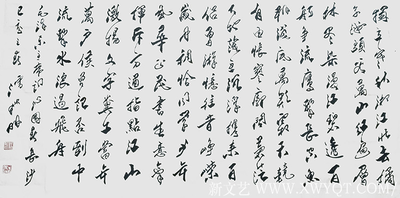 独立寒秋湘江北去橘
子洲头看万山红遍层
林尽染漫江碧透百
舸争流鹰击长空鱼
翔浅底万类霜天竞
自由怅寥廓问苍茫
大地谁主沉浮携来百
侣曾游忆往昔峥嵘
岁月稠恰同学少年
风华正茂书生意气
挥斥方遒指点江山
激扬文字粪土当年
万户侯曾记否到中
流击水浪遏飞舟
毛泽东主席词沁园春长沙
新文艺